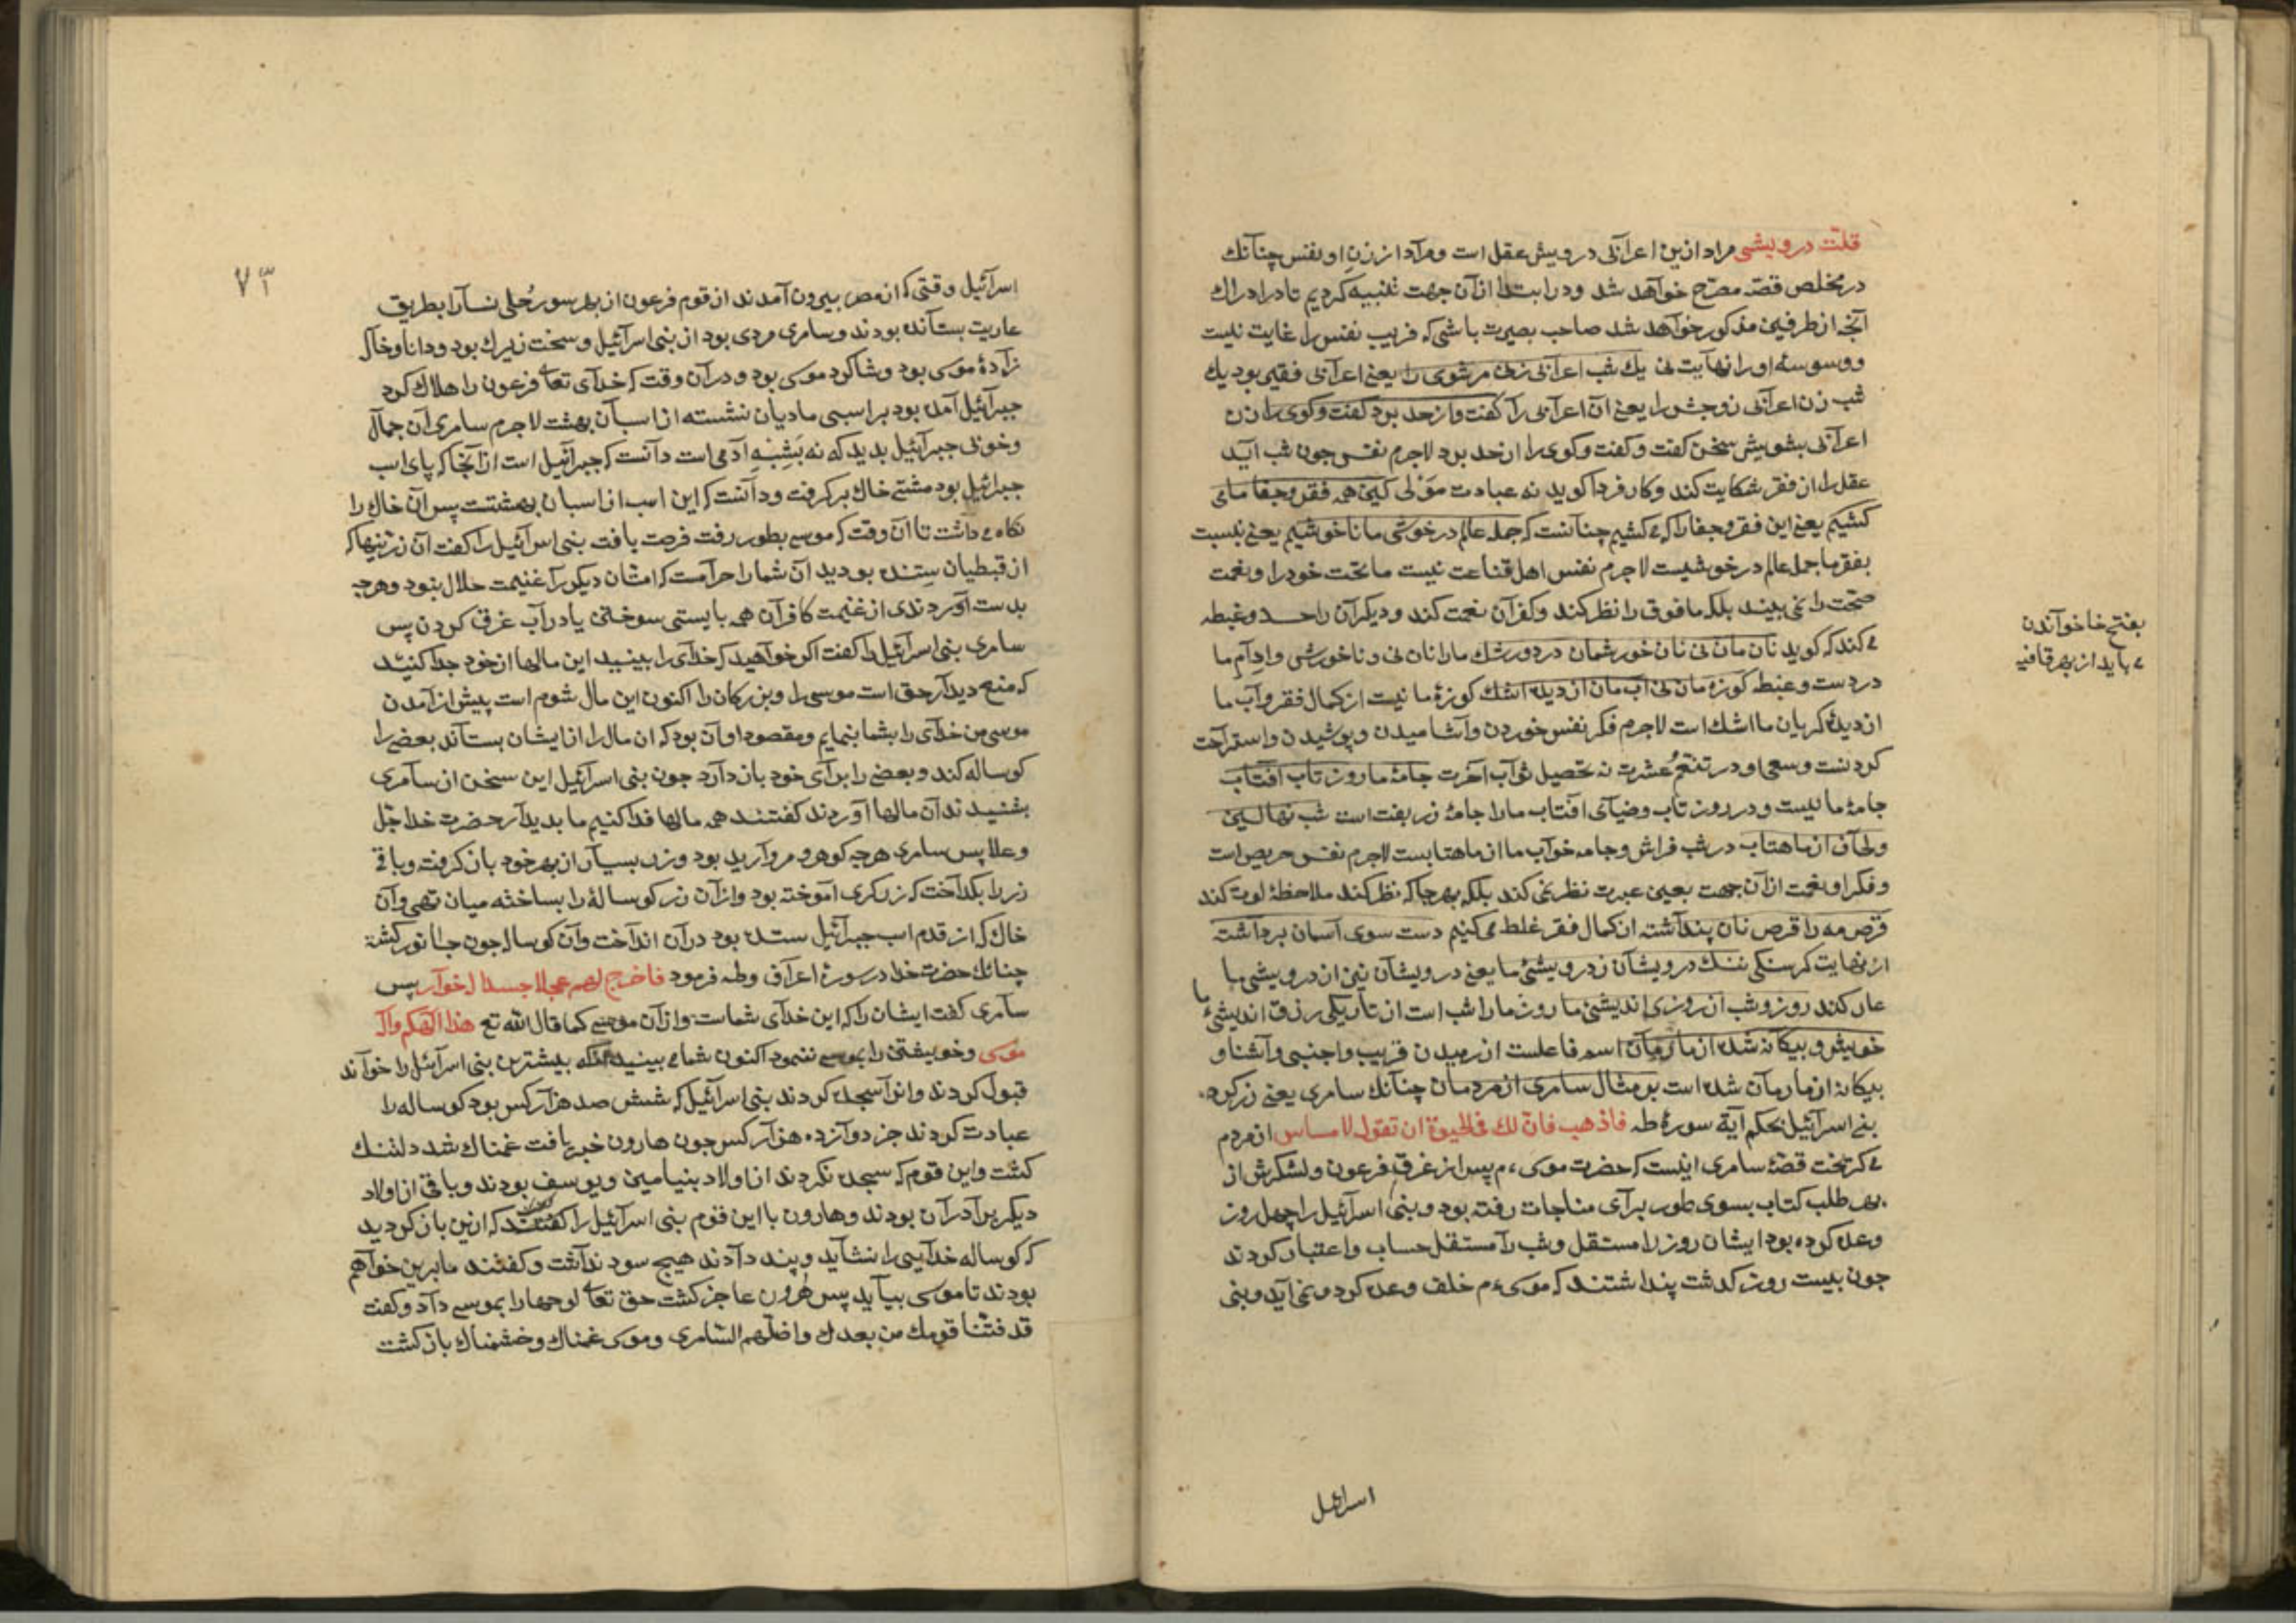 قلّت درویشی مراد ازین اعرابی درویش عقل است ومراد از زنِ او نفس چنانك
در مخلص قصّه مصرّح خواهد شد ودر ابتدا ازآن جهت تنبیه کردیم تا در ادراك
آنچه از طرفین مذکور خواهد شد صاحب بصیرت باشی که فریب نفس را غایت نیست
ووسوسهٔ او را نهایت نی یك شب اعرابی زنی مر شوی را یعنی اعرابی فقیر بود یك
شب زن اعرابی زوجش را یعنی ان اعرابی را کفت واز حد برد کفت وکوی را زن
اعرابی بشویش سخن کفت وکفت وکوی را از حد برد لاجرم نفس جون شب آید
عقل را از فقر شکایت کند وکار فردا کوید نه عبادت مولی کین همه فقر وجفا ما می
کشیم یعنی این فقر وجفا را که می کشیم چنانست که جمله عالم در خوشی ما ناخوشیم یعنی بنسبت
بفقر ما جمله عالم در خوشیست لاجرم نفس اهل قناعت نیست ما تحت خود را ونعمت
صحّت را نمی بیند بلکه ما فوق را نظر کند وکفران نعمت کند ودیکران را حسد وغبطه
می کند که کوید نان مان نی نان خورشمان درد ورشك ما را نان نی ونا خورشی وادام ما
درد ست وغبطه کوزه مان نی اب مان از دیده اشك کوزهٔ ما نیست از کمال فقر وآب ما
از دیدهٔ کریان ما اشك است لاجرم فکر نفس خوردن وآشامیدن وپوشیدن واستراحت
کردنست وسعی او در تنعّم عشرت نه تحصیل ثواب آخرت جامهٔ ما روز تاب افتاب
جامهٔ ما نیست ودر روز تاب وضیای افتاب ما را جامهٔ زربفت است شب نهالین
ولحاف از ماهتاب در شب فراش وجامه خواب ما از ماهتابست لاجرم نفس حریص است
وفکر او نعمت ازآن جهت بعین عبرت نظر نمی کند بلکه بهر جا که نظر کند ملاحظهٔ لوت کند
قرص مه را قرص نان پنداشته از کمال فقر غلط می کنیم دست سوی آسمان برداشته
از نهایت کرسنکی ننك درویشان ز درویشیٔ ما یعنی درویشان نیز از درویشی ما
عار کند روز وشب از روزی اندیشیٔ ما روز ما را شب است از تاریکی رزق اندیشیٔ ما
خویش وبیکانه شده از ما رمان رمان اسم فاعلست از رمیدن قریب واجنبی وآشنا و
بیکانه از ما رمان شده است بر مثال سامری از مردمان چنانك سامری یعنی زرکر
بنی اسرآئیل بحکم آیة سورهٔ طه فاذهب فانّ لك فی الحیوة ان تقول لا مساس از مردم
می کریخت قصّهٔ سامری اینست که حضرت موسی ءم پس از غرق فرعون ولشکرش از
بهر طلب کتاب بسوی طور برآی مناجات رفته بود وبنی اسرآئیل را چهل روز
وعده کرده بود ایشان روز را مستقل وشب را مستقل حساب واعتبار کردند
جون بیست روز کذشت پنداشتند که موسی ءم خلف وعده کرد ونمی آید وبنی
بفتح خا خوآندن
می باید از بهر قافیه
اسرائیل
٧٣
اسرآئیل وقتی که از مصر بیرون آمدند از قوم فرعون از بهر سور حُلی نسآ را بطریق
عاریت بستانده بودند وسامری مردی بود از بنی اسرآئیل وسخت زیرك بود ودانا وخال
زادهٔ موسی بود وشاکرد موسی بود ودرآن وقت که خدآی تعا فرعون را هلاك کرد
جبرآئیل آمده بود بر اسبی مادیان نشسته از اسبان بهشت لاجرم سامری آن جمال
وخوبی جبرآئیل بدید که نه بَشِبْهِ آدمی است دانست که جبرآئیل است از آنجا که پای اسب
جبرائیل بود مشتی خاك برکرفت ودانست که این اسب از اسبان بهشتست پس آن خاك را
نکاه می داشت تا آن وقت که موسی بطور رفت فرصت یافت بنی اسرآئیل را کفت آن زرینها که
از قبطیان ستنده بودید آن شما را حرامست که امتان دیکر را غنیمت حلال نبود وهرجه
بدست آوردندی از غنیمت کافران همه بایستی سوختن یا در آب غرق کردن پس
سامری بنی اسرآئیل را کفت اکر خواهید که خدای را ببینید این مالها از خود جدا کنید
که منع دیدار حق است موسی را وبزرکان را اکنون این مال شوم است پیش از آمدن
موسی من خدآی را بشما بنمایم ومقصود او آن بود که ان مال را از ایشان بستاند بعضی را
کوساله کند وبعضی را برآی خود باز دارد جون بنی اسرآئیل این سخن از سامری
بشنیدند آن مالها آوردند کفتند همه مالها فدا کنیم ما بدیدار حضرت خدا جلّ
وعلا پس سامری هرجه کوهر ومروارید بود وزر بسیار از بهر خود باز کرفت وباقی
زر را بکداخت که زرکری آموخته بود وازآن زر کوسالهٔ را بساخته میان تهی وآن
خاك که از قدم اسب جبرآئیل ستده بود درآن انداخت وآن کوساله جون جانور کشته
چنانك حضرت خدا در سورهٔ اعراف وطه فرمود فاخرج لهم عجلا جسدا له خوار پس
سآمری کفت ایشان را که این خدآی شماست وازآن موسی کما قال الله تع هذا الهکم واله
موسی وخویشتن را بموسی ننمود اکنون شما می بینید بیشترین بنی اسرآئیل را خوآند
قبول کردند وانرا سجده کردند بنی اسرآئیل که شش صد هزآر کس بود کوساله را
عبادت کردند جز دوآزده هزآر کس جون هارون خبر یافت غمناك شد دلتنك
کشت واین قوم که سجده نکردند از اولاد بنیامین ویوسف بودند وباقی از اولاد
دیکر برآدرآن بودند وهارون با این قوم بنی اسرآئیل را کفتند که ازین باز کردید
که کوساله خدآیی را نشاید وپند دآدند هیچ سود نداشت وکفتند ما برین خوآهم
بودند تا موسی بیآید پس هرون عاجز کشت حق تعا لوحها را بموسی دآد وکفت
قد فتنّا قومك من بعدك واضلّهم السّامری وموسی غمناك وخشمناك باز کشت